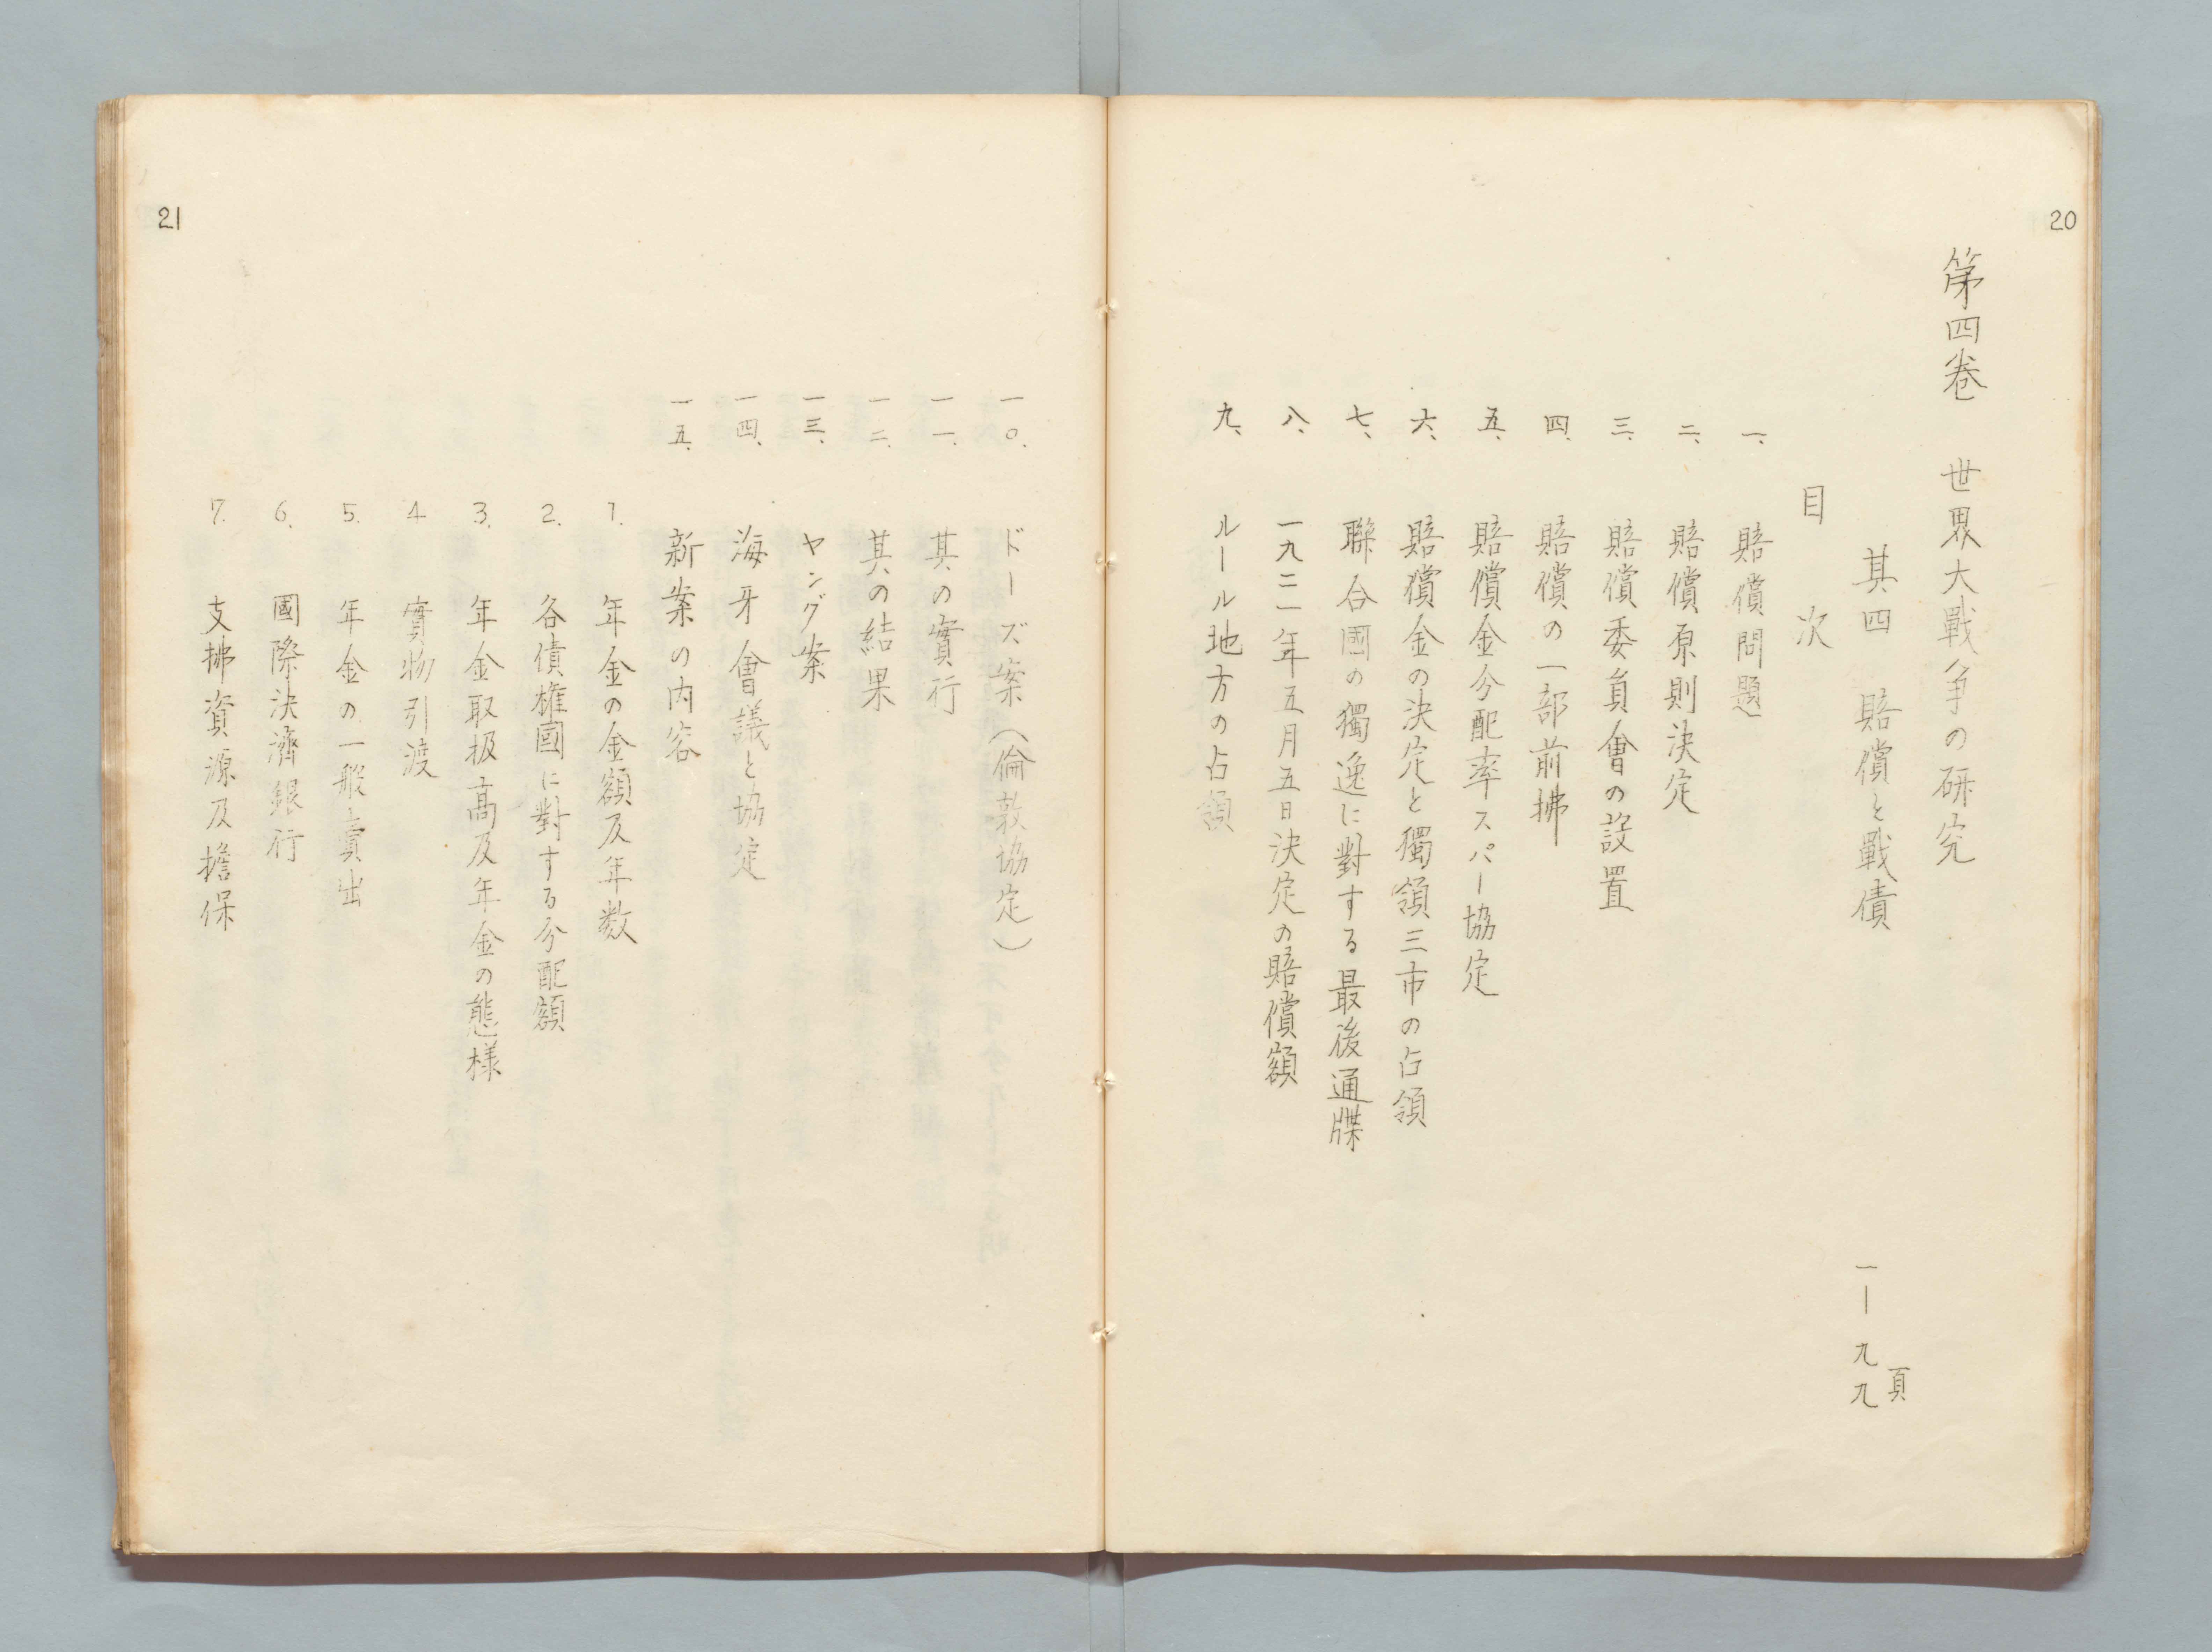 20
第四巻　世界大戰争の研究
其四　賠償と戰債　一―九九頁
目次
一、賠償問題
二、賠償原則決定
三、賠償委員會の設置
四、賠償の一部前拂
五、賠償金分配率スパー協定
六、賠償金の決定と獨領三市の占領
七、聯合國の獨逸に對する最後通牒
八、一九二一年五月五日決定の賠償額
九、ルール地方の占領
21
一〇、ドーズ案（倫敦協定）
一一、其の實行
一二、其の結果
一三、ヤング案
一四、海牙會議と協定
一五、新案の内容
1. 年金の金額及年数
2. 各債権國に對する分配額
3. 年金取扱高及年金の態様
4 實物引渡
5. 年金の一般賣出
6. 國際決濟銀行
7. 支拂資源及擔保